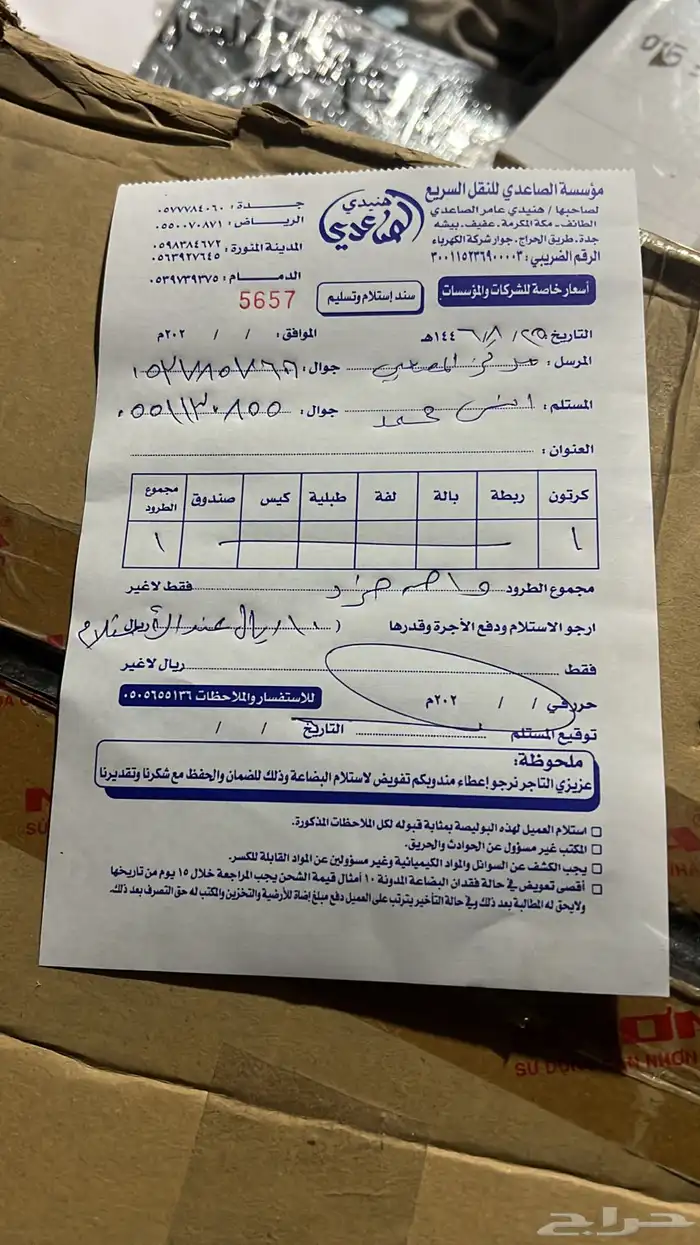 مؤسسة الصاعدي للنقل السريع
لصاحبها / هنيدي عامر الصاعدي
الطائف - مكة المكرمة. عفيف. بيشه
جدة. طريق الحراج. جوار شركة الكهرباء
الرقم الضريبي: ٣٠٠١١٥٢٣٦٩٠٠٠٠٣
هنيدي
الصاعدي
جــدة : ٠٥٧٧٧٨٤٠٦٠
الرياض : ٠٥٥٠٠٧٠٨٧١
المدينة المنورة : ٠٥٩٨٣٨٤٦٧٢
٠٥٦٣٩٢٧٦٤٥
الدمام : ٠٥٣٩٧٣٩٣٧٥
أسعار خاصة للشركات والمؤسسات
سند إستلام وتسليم
5657
التاريخ ٢٥ / ٨ / ١٤٤٦هـ الموافق: / / ٢٠٢م
المرسل : مركز جوال:
المستلم : انس محمد جوال: ٠٥٥١١٣٠٨٥٥
العنوان :
كرتون ربطة بالة لفة طبلية كيس صندوق مجموع الطرود
١ ١
مجموع الطرود واحد فقط لاغير
ارجو الاستلام ودفع الأجرة وقدرها ( ريال عند الأستلام ريال
فقط ريال لاغير
حرر في / / ٢٠٢م
للاستفسار والملاحظات ٠٥٠٥٦٥٥١٣٦
توقيع المستلم التاريخ / /
ملحوظة:
عزيزي التاجر نرجو إعطاء مندوبكم تفويض لاستلام البضاعة وذلك للضمان والحفظ مع شكرنا وتقديرنا
استلام العميل لهذه البوليصة بمثابة قبوله لكل الملاحظات المذكورة.
المكتب غير مسؤول عن الحوادث والحريق.
يجب الكشف عن السوائل والمواد الكيميائية وغير مسؤولين عن المواد القابلة للكسر.
أقصى تعويض في حالة فقدان البضاعة المدونة ١٠ أمثال قيمة الشحن يجب المراجعة خلال ١٥ يوم من تاريخها
ولايحق له المطالبة بعد ذلك وفي حالة التأخير يترتب على العميل دفع مبلغ إضافة للأرضية والتخزين والمكتب له حق التصرف بعد ذلك.
حراج